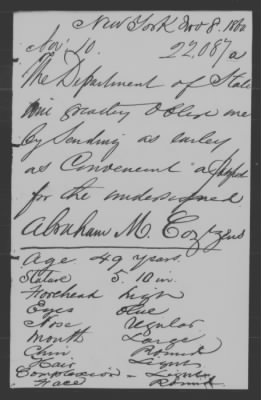 New York Nov 8. 1860
Nov. 10. 22,087 a
The Department of State
will greatly oblige me
by Sending as earley
as Convenient a
for the undersigned
Abraham M. Cozzens
Age 49 years.
Stature 5. 10 in.
Forehead high
Eyes blue
Nose regular
Mouth Large
Chin Round
Hair Light
Complexion - Light
Face Round